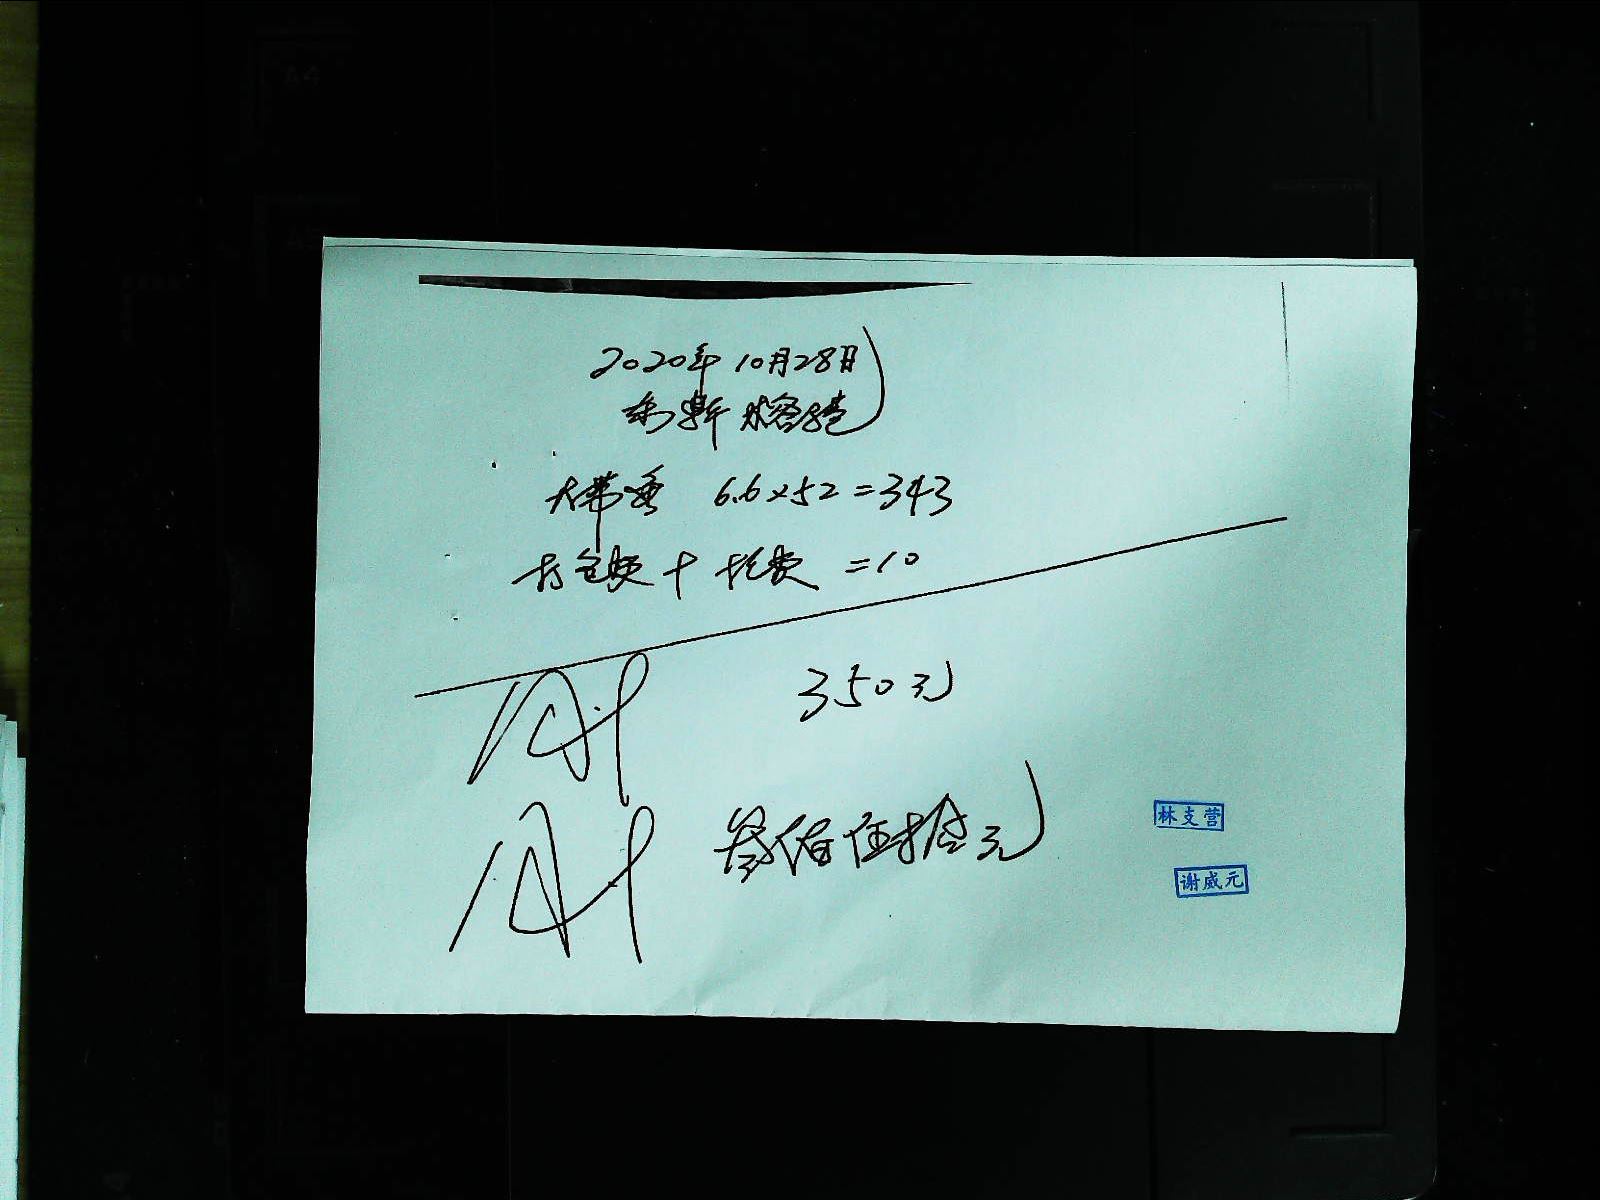 2020年10月28日
大带鱼 6.6×52=343
打包费+托费=10
350元
叁佰伍拾元
林支营
谢威元